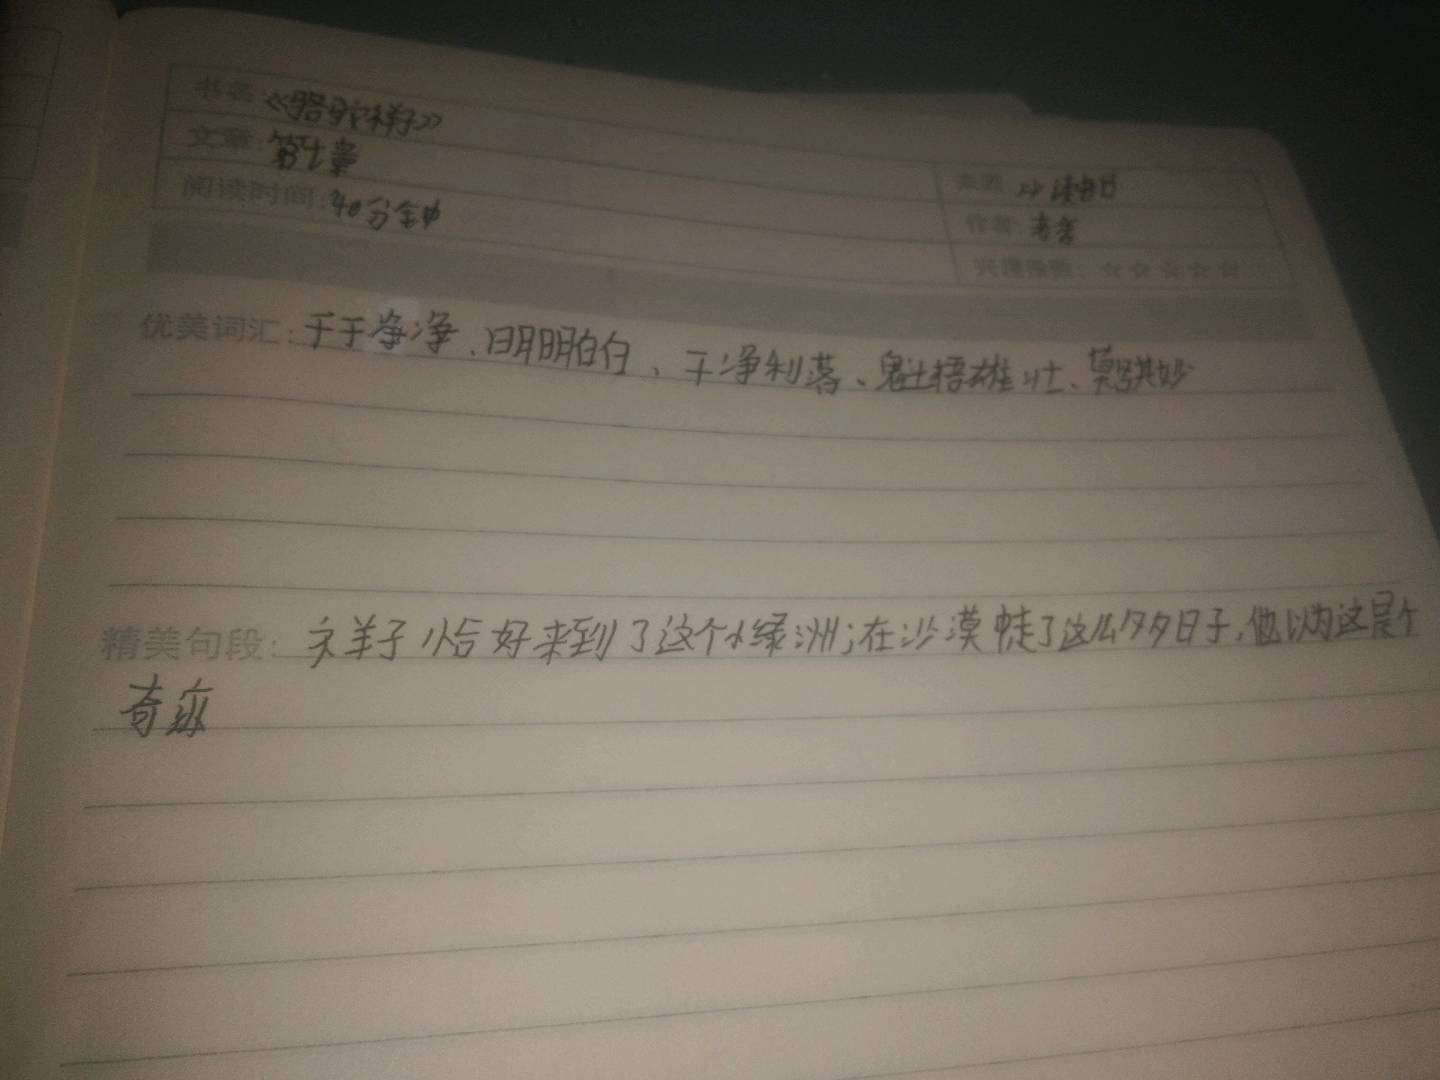 书名《骆驼祥子》
文章:第七章
阅读时间:40分钟
作者:老舍
☆☆☆☆☆
优美词汇:干干净净、明明白白、干净利落、魁梧雄壮、莫名其妙
精美句段:祥子恰好来到了这个小绿洲;在沙漠走了这么多日子,他以为这是个
奇迹